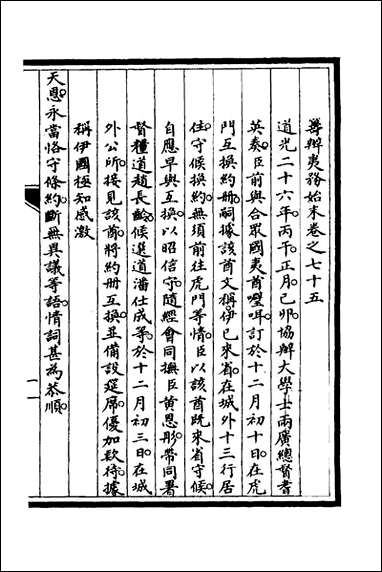 籌辦夷務始末卷之七十五
道光二十六年丙午正月己卯協辦大學士兩廣總督耆
英奏臣前與合衆國夷酋㗌咡訂於十二月初十日在虎
門互換約冊嗣據該酋文稱伊已來省在城外十三行居
住守候換約無須前往虎門等情臣以該酋既來省守候
自應早與互換以昭信守隨經會同撫臣黃恩彤帶同署
督糧道趙長齡候選道潘仕成等於十二月初三日在城
外公所接見該酋將約冊互換並備設筵席優加款待據
稱伊國極知感激
天恩永當恪守條約斷無異議等語情詞甚為恭順
一